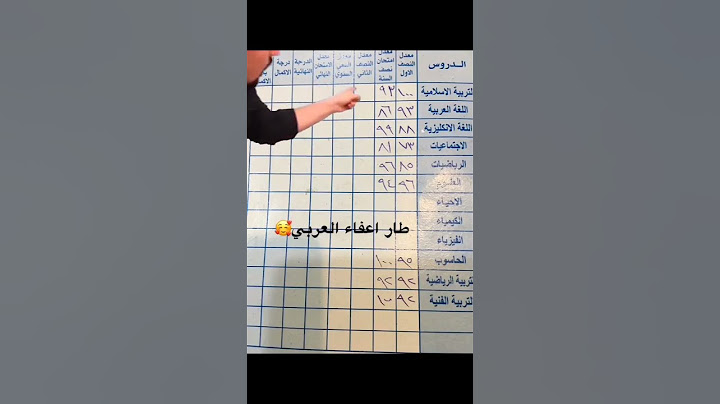 الدروس معدل النصف الاول معدل امتحان نصف السنة معدل النصف الثاني معدل السعي السنوي معدل الامتحان النهائي الدرجة النهائية درجة الاكمال
لتربية الاسلامية ١٠٠ ٩٣
اللغة العربية ٩٣ ٨٦
اللغة الانكليزية ٨٨ ٩٩
الاجتماعيات ٧٣ ٨١
الرياضيات ٨٥ ٩٦
العلوم ٩٦ ٩٤
الاحياء
طار اعفاء العربي🥰
الكيمياء
الفيزياء
الحاسوب ٩٥ ١٠٠
لتربية الرياضية ٩٢ ٩٢
لتربية الفنية ٩٢ ١٠٠